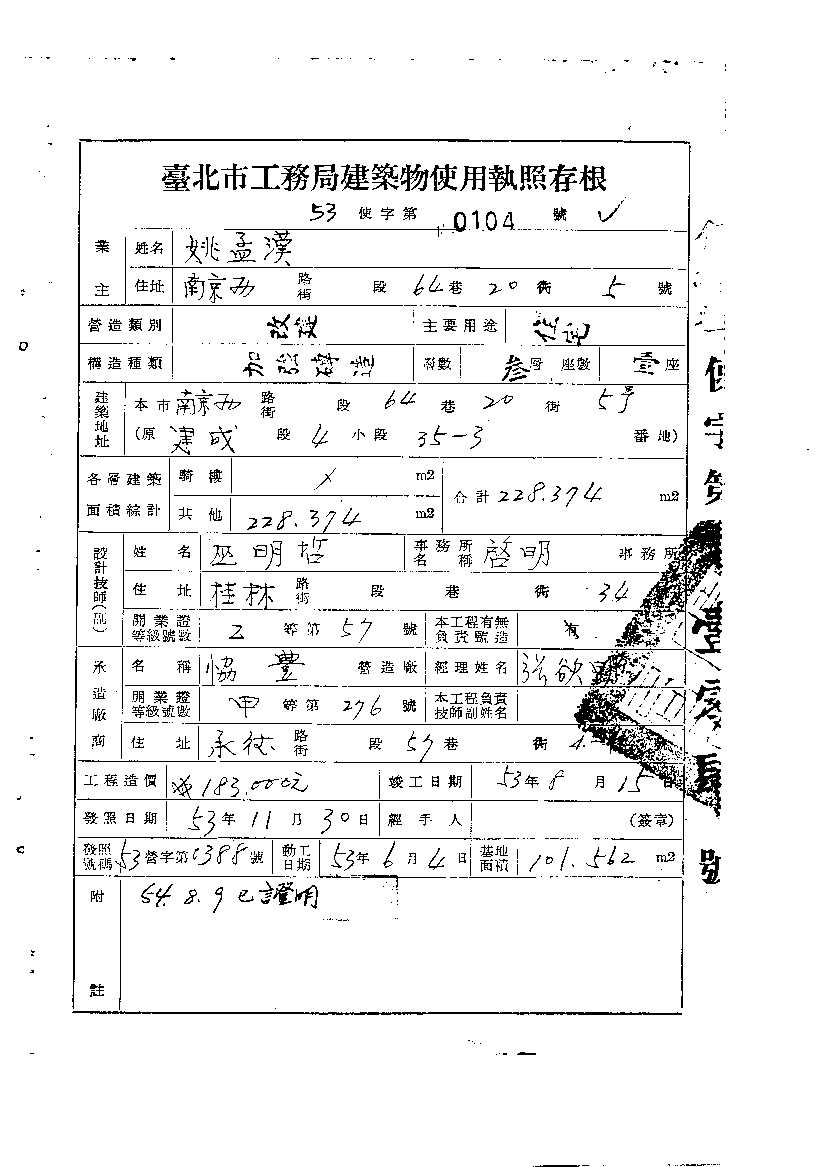 臺北市工務局建築物使用執照存根
53 使字第 0104 號 ✓
業主 姓名 姚孟漢
住址 南京西 路街 段 64 巷 20 衖 5 號
營造類別 改建 主要用途 住宅
構造種類 加強磚造 層數 叁層 座數 壹座
建築地址 本市 南京西 路街 段 64 巷 20 衖 5号
(原 建成 段 4 小段 35-3 番地)
各層建築面積綜計 騎樓 m2 合計 228.374 m2
其他 228.374 m2
設計技師(副) 姓名 巫明哲 事務所名稱 啓明 事務所
住址 桂林 路街 段 巷 衖 34
開業證等級號數 乙 等第 57 號 本工程有無負責監造 有
承造廠商 名稱 協豐 營造廠 經理姓名 張欲
開業證等級號數 甲 等第 276 號 本工程負責技師副姓名
住址 承德 路街 段 57 巷 衖
工程造價 183,000元 竣工日期 53年 8 月 15 日
發照日期 53年 11 月 30日 經手人 (簽章)
發照號碼 53營字第0388號 動工日期 53年 6 月 4 日 基地面積 101.562 m2
附註 54.8.9 已證明
使字第
壹零肆
號